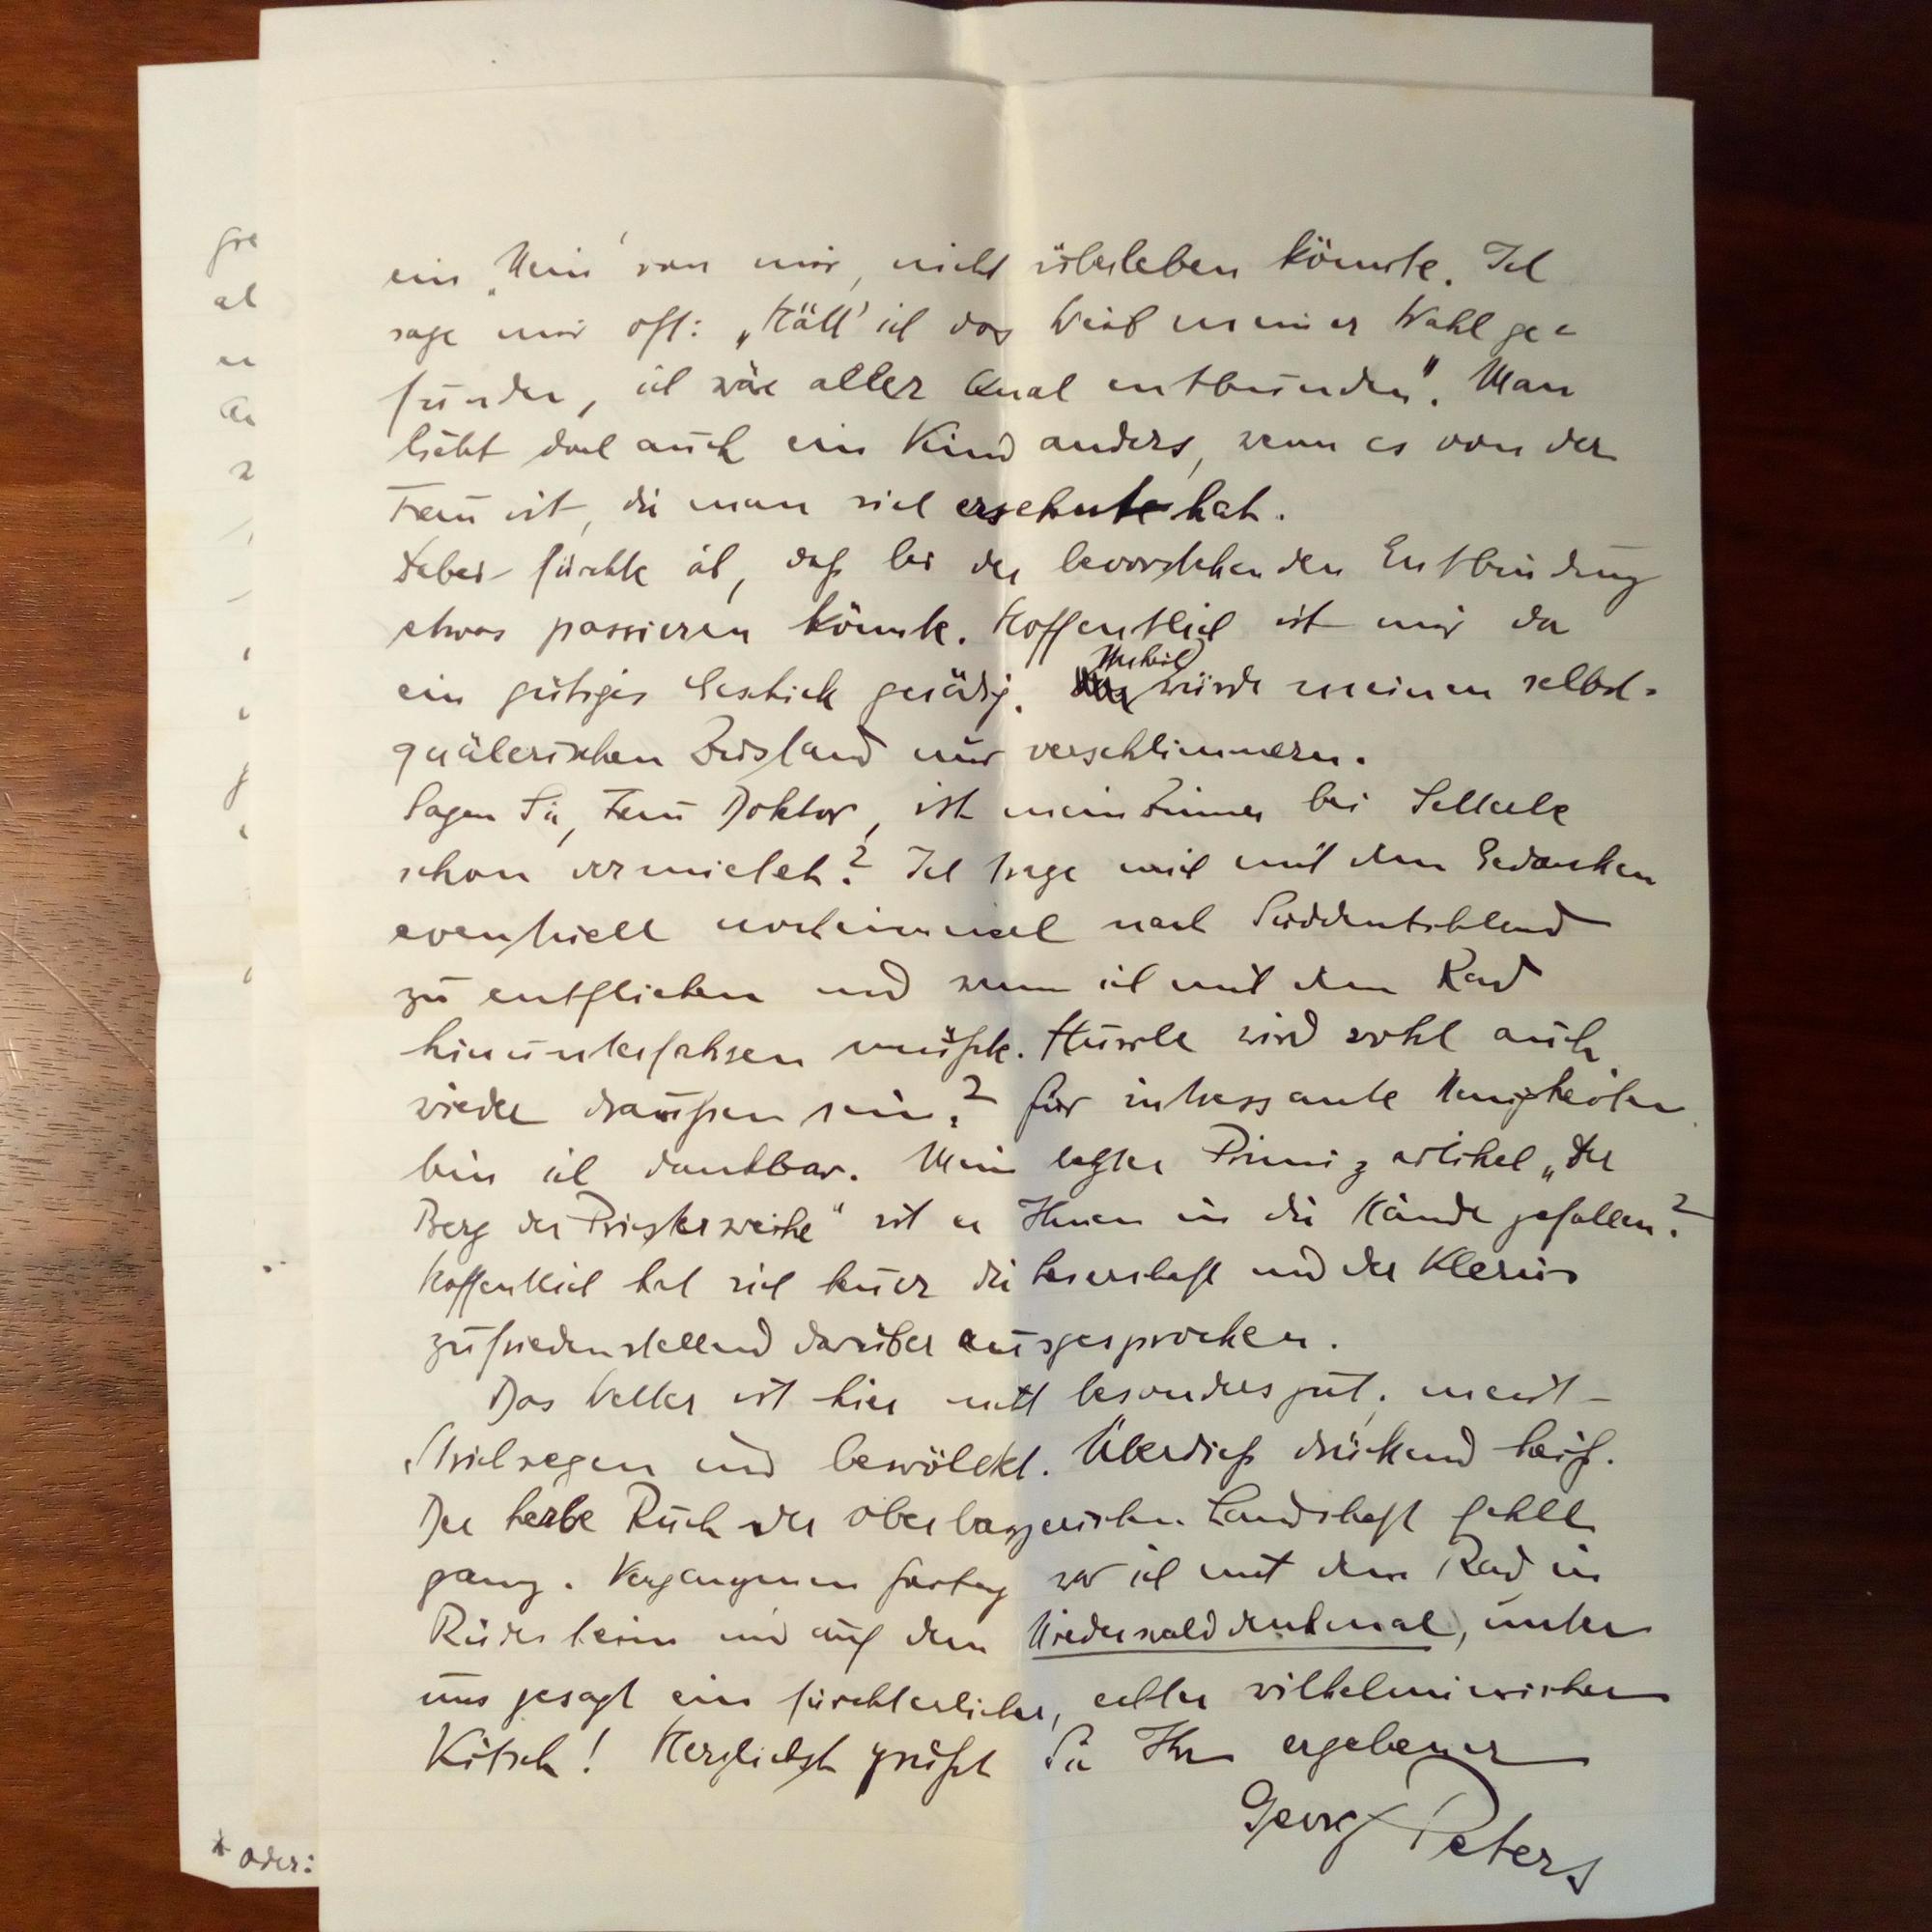 ein „Nein“ von mir, nicht überleben könnte. Ich
sage mir oft: „Hätt' ich das Weib meiner Wahl ge-
funden, ich wäre aller Qual entbunden“. Man
liebt doch auch ein Kind anders, wenn es von der
Frau ist, die man sich ersehnte hat.
Dabei fürchte ich, daß bei der bevorstehenden Entbindung
etwas passieren könnte. Hoffentlich ist mir da
ein gütiges Geschick gnädig. Unheil würde meinen selbst-
quälerischen Zustand nur verschlimmern.
Sagen Sie, Frau Doktor, ist mein Zimmer bei
schon vermietet? Ich trage mich mit dem Gedanken
eventuell nocheinmal nach Süddeutschland
zu entfliehen und wenn ich mit dem Rad
hinunterfahren müßte. wird wohl auch
wieder draußen sein? Für interessante Neuigkeiten
bin ich dankbar. Mein letzter Primizartikel „Der
Berg der Priesterweihe“ ist er Ihnen in die Hände gefallen?
Hoffentlich hat sich heuer die Leserschaft und der Klerus
zufriedenstellend darüber ausgesprochen.
Das Wetter ist hier nicht besonders gut, meist
Strichregen und bewölkt. Überdieß drückend heiß.
Der herbe Ruch der oberbayerischen Landschaft fehlt
ganz. Vergangenen war ich mit dem Rad in
Rüdesheim und auf dem Niederwalddenkmal, unter
uns gesagt ein fürchterlicher, echter wilhelminischer
Kitsch! Herzlichst grüßt Sie Ihr ergebener
Georg Peters
gre
al
* oder: